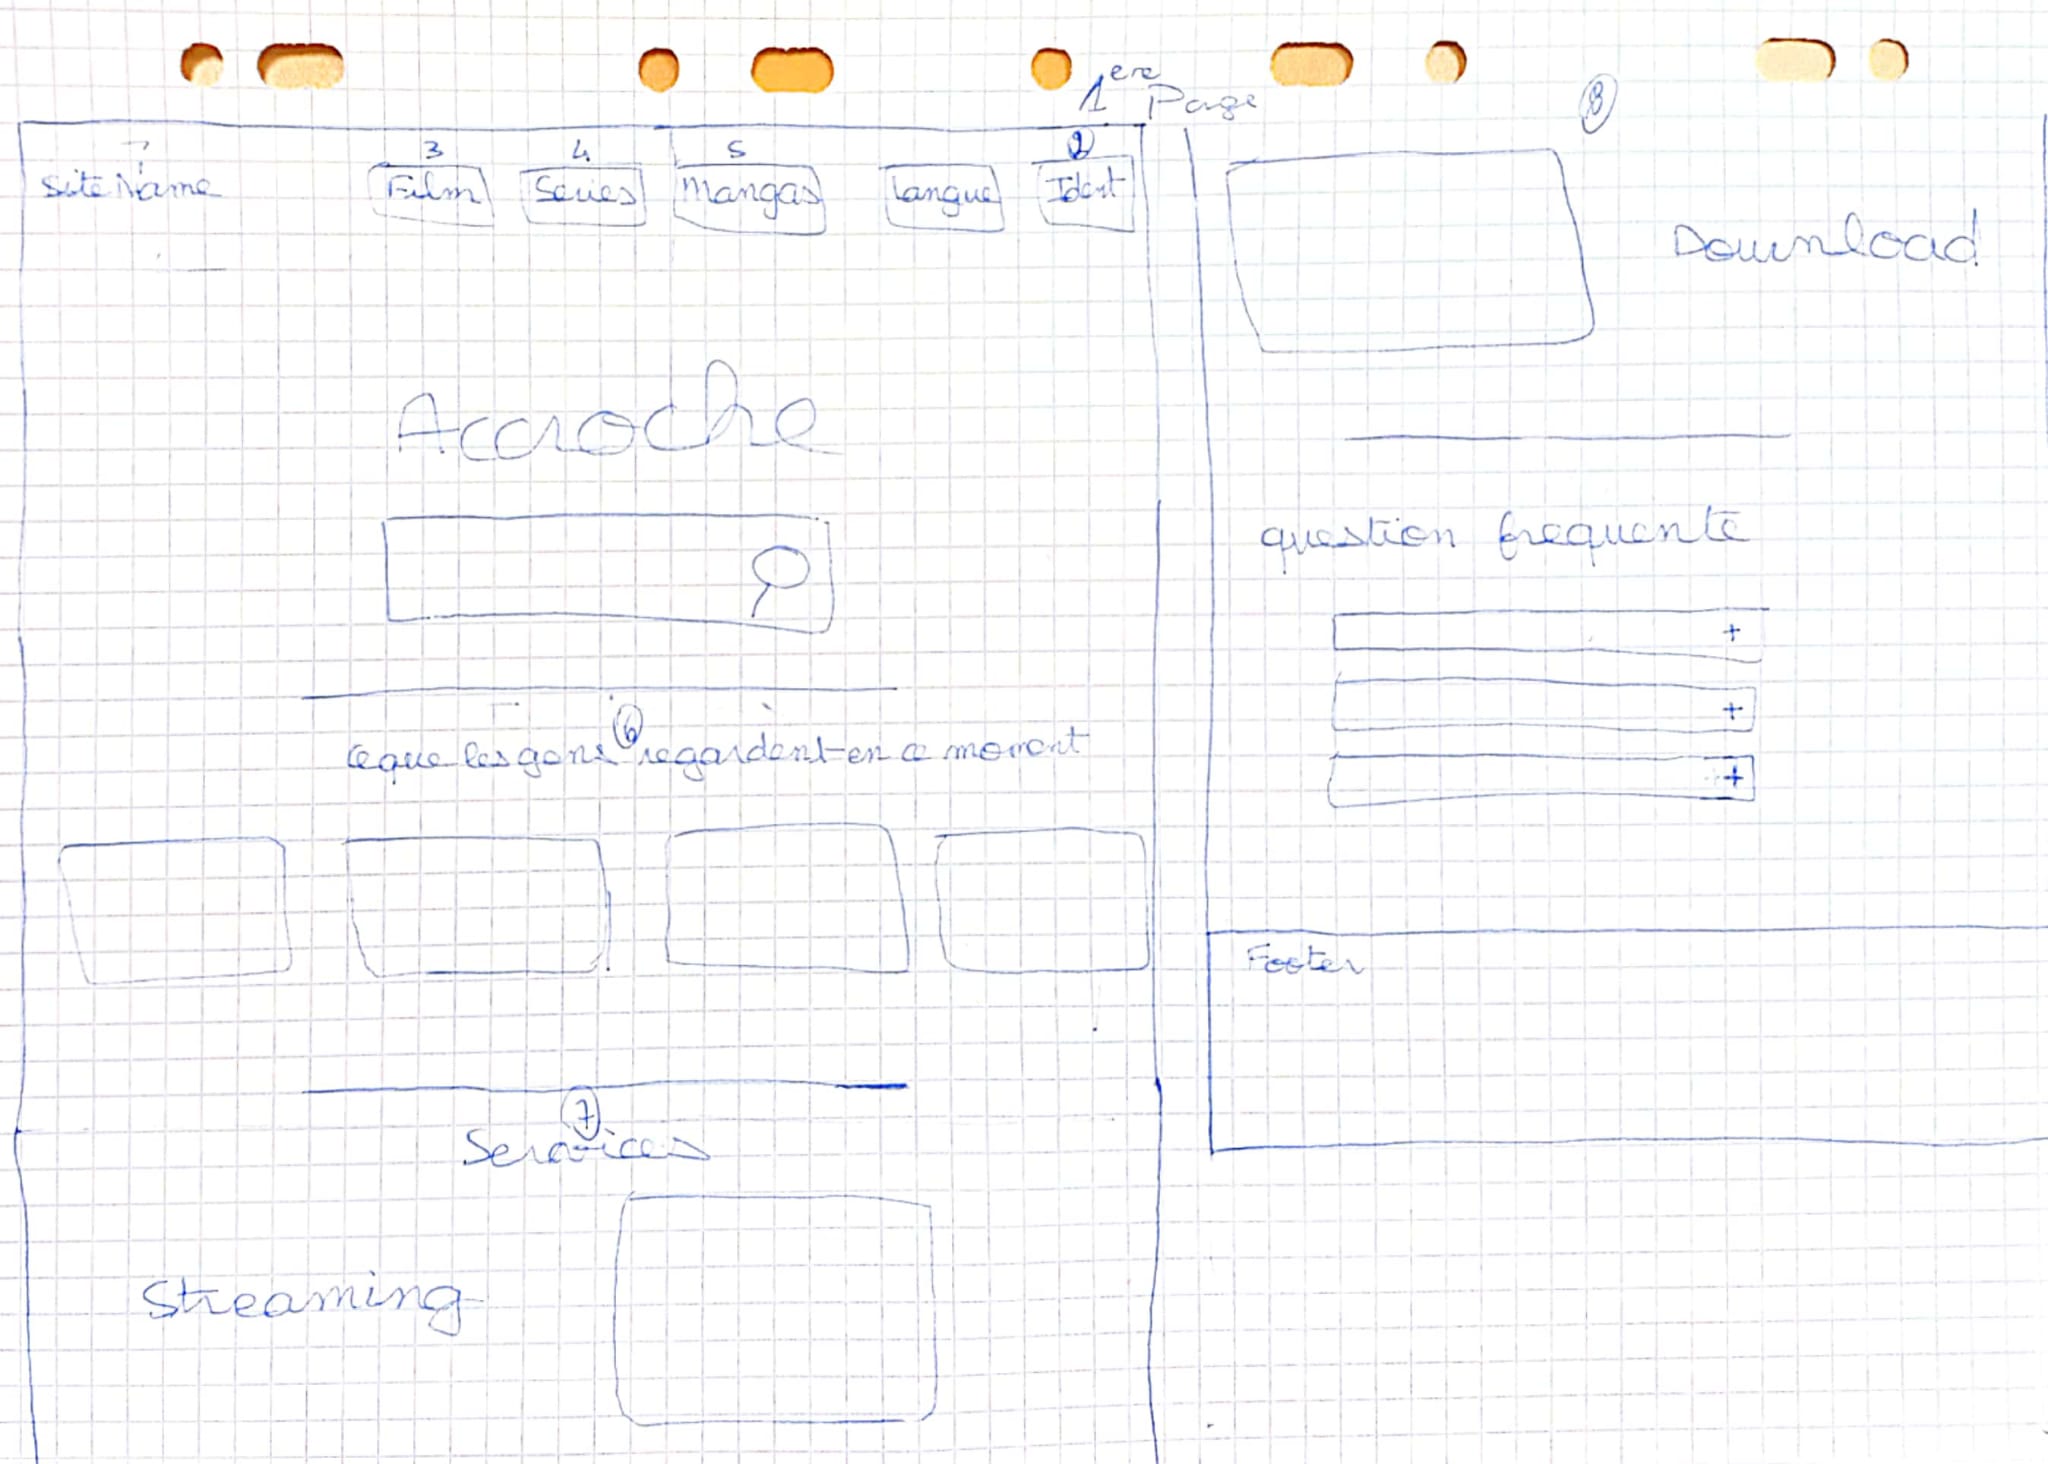 1ere Page
7 3 4 5 2
Site Name Film Series Mangas langue Ident
Accroche
6
ce que les gens regardent en ce moment
7
Services
Streaming
8
Download
question frequente
+
+
+
Footer